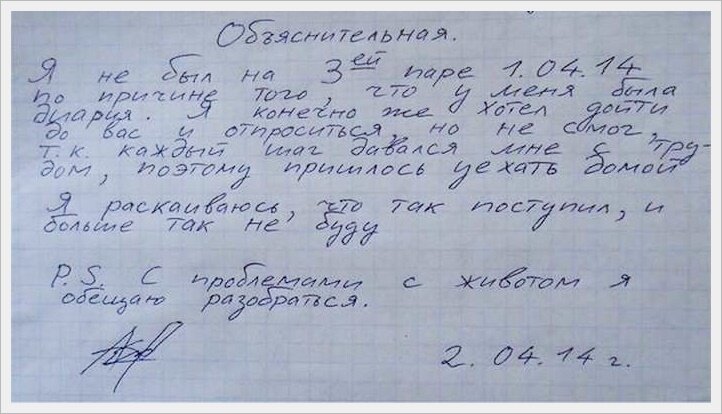 Объяснительная.
Я не был на 3ей паре 1.04.14
по причине того, что у меня была
диария. Я конечно же хотел дойти
до вас и отпроситься, но не смог,
т.к. каждый шаг давался мне с тру-
дом, поэтому пришлось уехать домой
Я раскаиваюсь, что так поступил, и
больше так не буду
P.S. С проблемами с животом я
обещаю разобраться.
2.04.14 г.